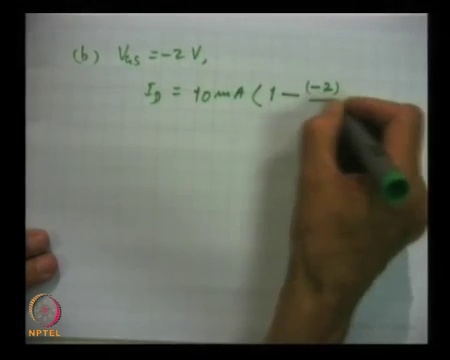 (b) VGS = -2 V,
ID = 10 mA ( 1 - (-2)
NPTEL